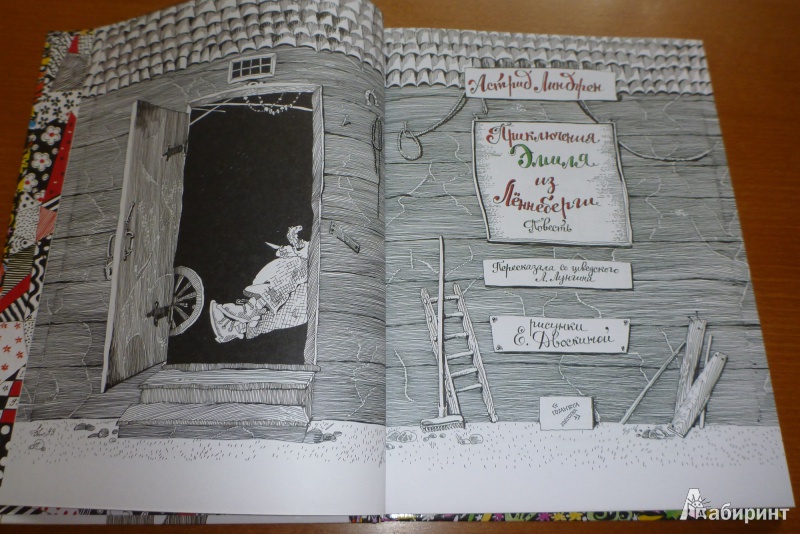 Астрид Линдгрен
Приключения
Эмиля
из
Лённеберги
Повесть
Пересказала со шведского
Л. Лунгина
рисунки
Е. Двоскиной
Лабиринт